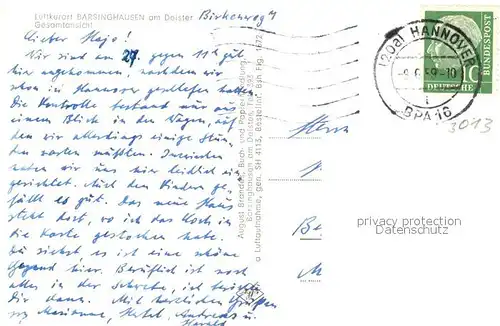 Luftkurort BARSINGHAUSEN am Deister
Gesamtansicht
Birkenweg 4
Lieber Hajo!
Wir sind am 27. gegen 11h gut
hier angekommen, nachdem wir
schon in Hannover geschlafen hatten.
Die Kontrolle bestand nur aus
einem Blick in den Wagen, auf
den wir allerdings einige Stun-
den warten mußten. Inzwischen
haben wir uns hier leidlich ein-
gerichtet. Auch den Kindern ge-
fällt es gut. Das neue Haus
steht dort, wo ich das Loch in
die Karte gestochen habe.
Du siehst es ist eine schöne
Gegend hier. Beruflich ist noch
alles in der Schwebe, ich berichte
Dir dann. Mit herzlichen Grüßen
Marianne, Andreas u.
Harald
August Brandes, Buch- und Papierhandlung,
Barsinghausen am Deister, Tel.
o Luftaufnahme, gen. SH 4113, Bestellnr. Bsn Flg. 1672
Herrn
Be
M
(20a) HANNOVER
-9.6.59-10
BPA 16
10
DEUTSCHE
BUNDESPOST
3013
privacy protection
Datenschutz